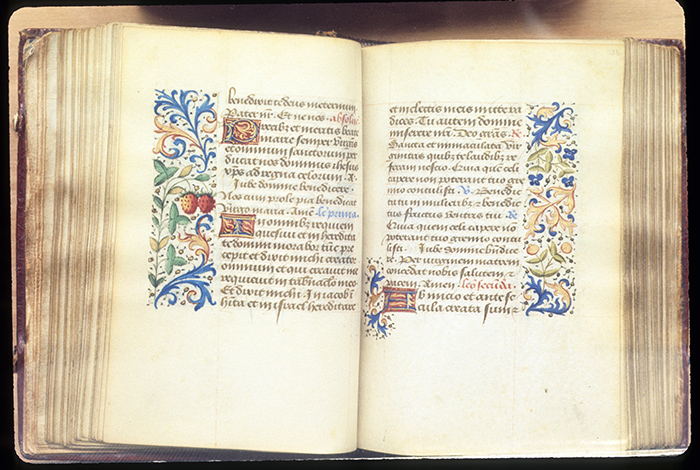 benedixit te deus in eternum
Pater nr. Et ne nos. absolutio
Precib; et meritis beate
marie semper virginis
et omnium sanctorum per
ducat nos dominus ihesus
xps ad regna celorum. A.
Iube domne benedicere.
Nos cum prole pia benedicat
virgo maria. Amē. le prima.
In omnib; requiem
quesiui et in heredita
te domini morabor tūc pre
cepit et dixit michi creator
omnium et qui creauit me
requieuit in tabnaclo meo
Et dixit michi. In iacob in
hita et in israel hereditare
et in electis meis mitte ra
dices. Tu autem domine
miserere nr̄i. Deo gr̄as. R.
Sancta et inmaculata vir
ginitas quib; te laudib; re
feram nescio. Quia quē celi
capere non poterant tuo gre
mio contulisti. V. Benedic
ta tu in mulierib; et benedic
tus fructus ventris tui. R.
Quia quem celi capere no
poterant tuo gremio contu
listi. Iube domne benedi
cere. Per virginem matrem
concedat nobis salutem et
pacem. Amen. leo secūda.
Ab inicio et ante se
cula creata sum et